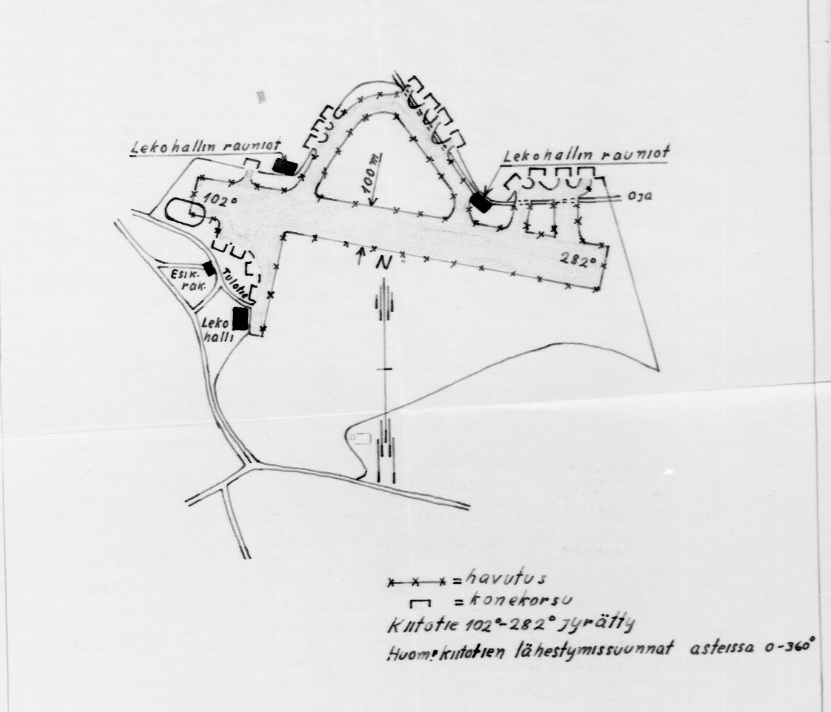 Lekohallin rauniot
Lekohallin rauniot
100 m
Oja
102°
282°
N
Esik.
rak.
Tulotie
Leko
halli
x—x—x = havutus
= konekorsu
Kiitotie 102°-282° jyrätty
Huom! kiitotien lähestymissuunnat asteissa 0-360°